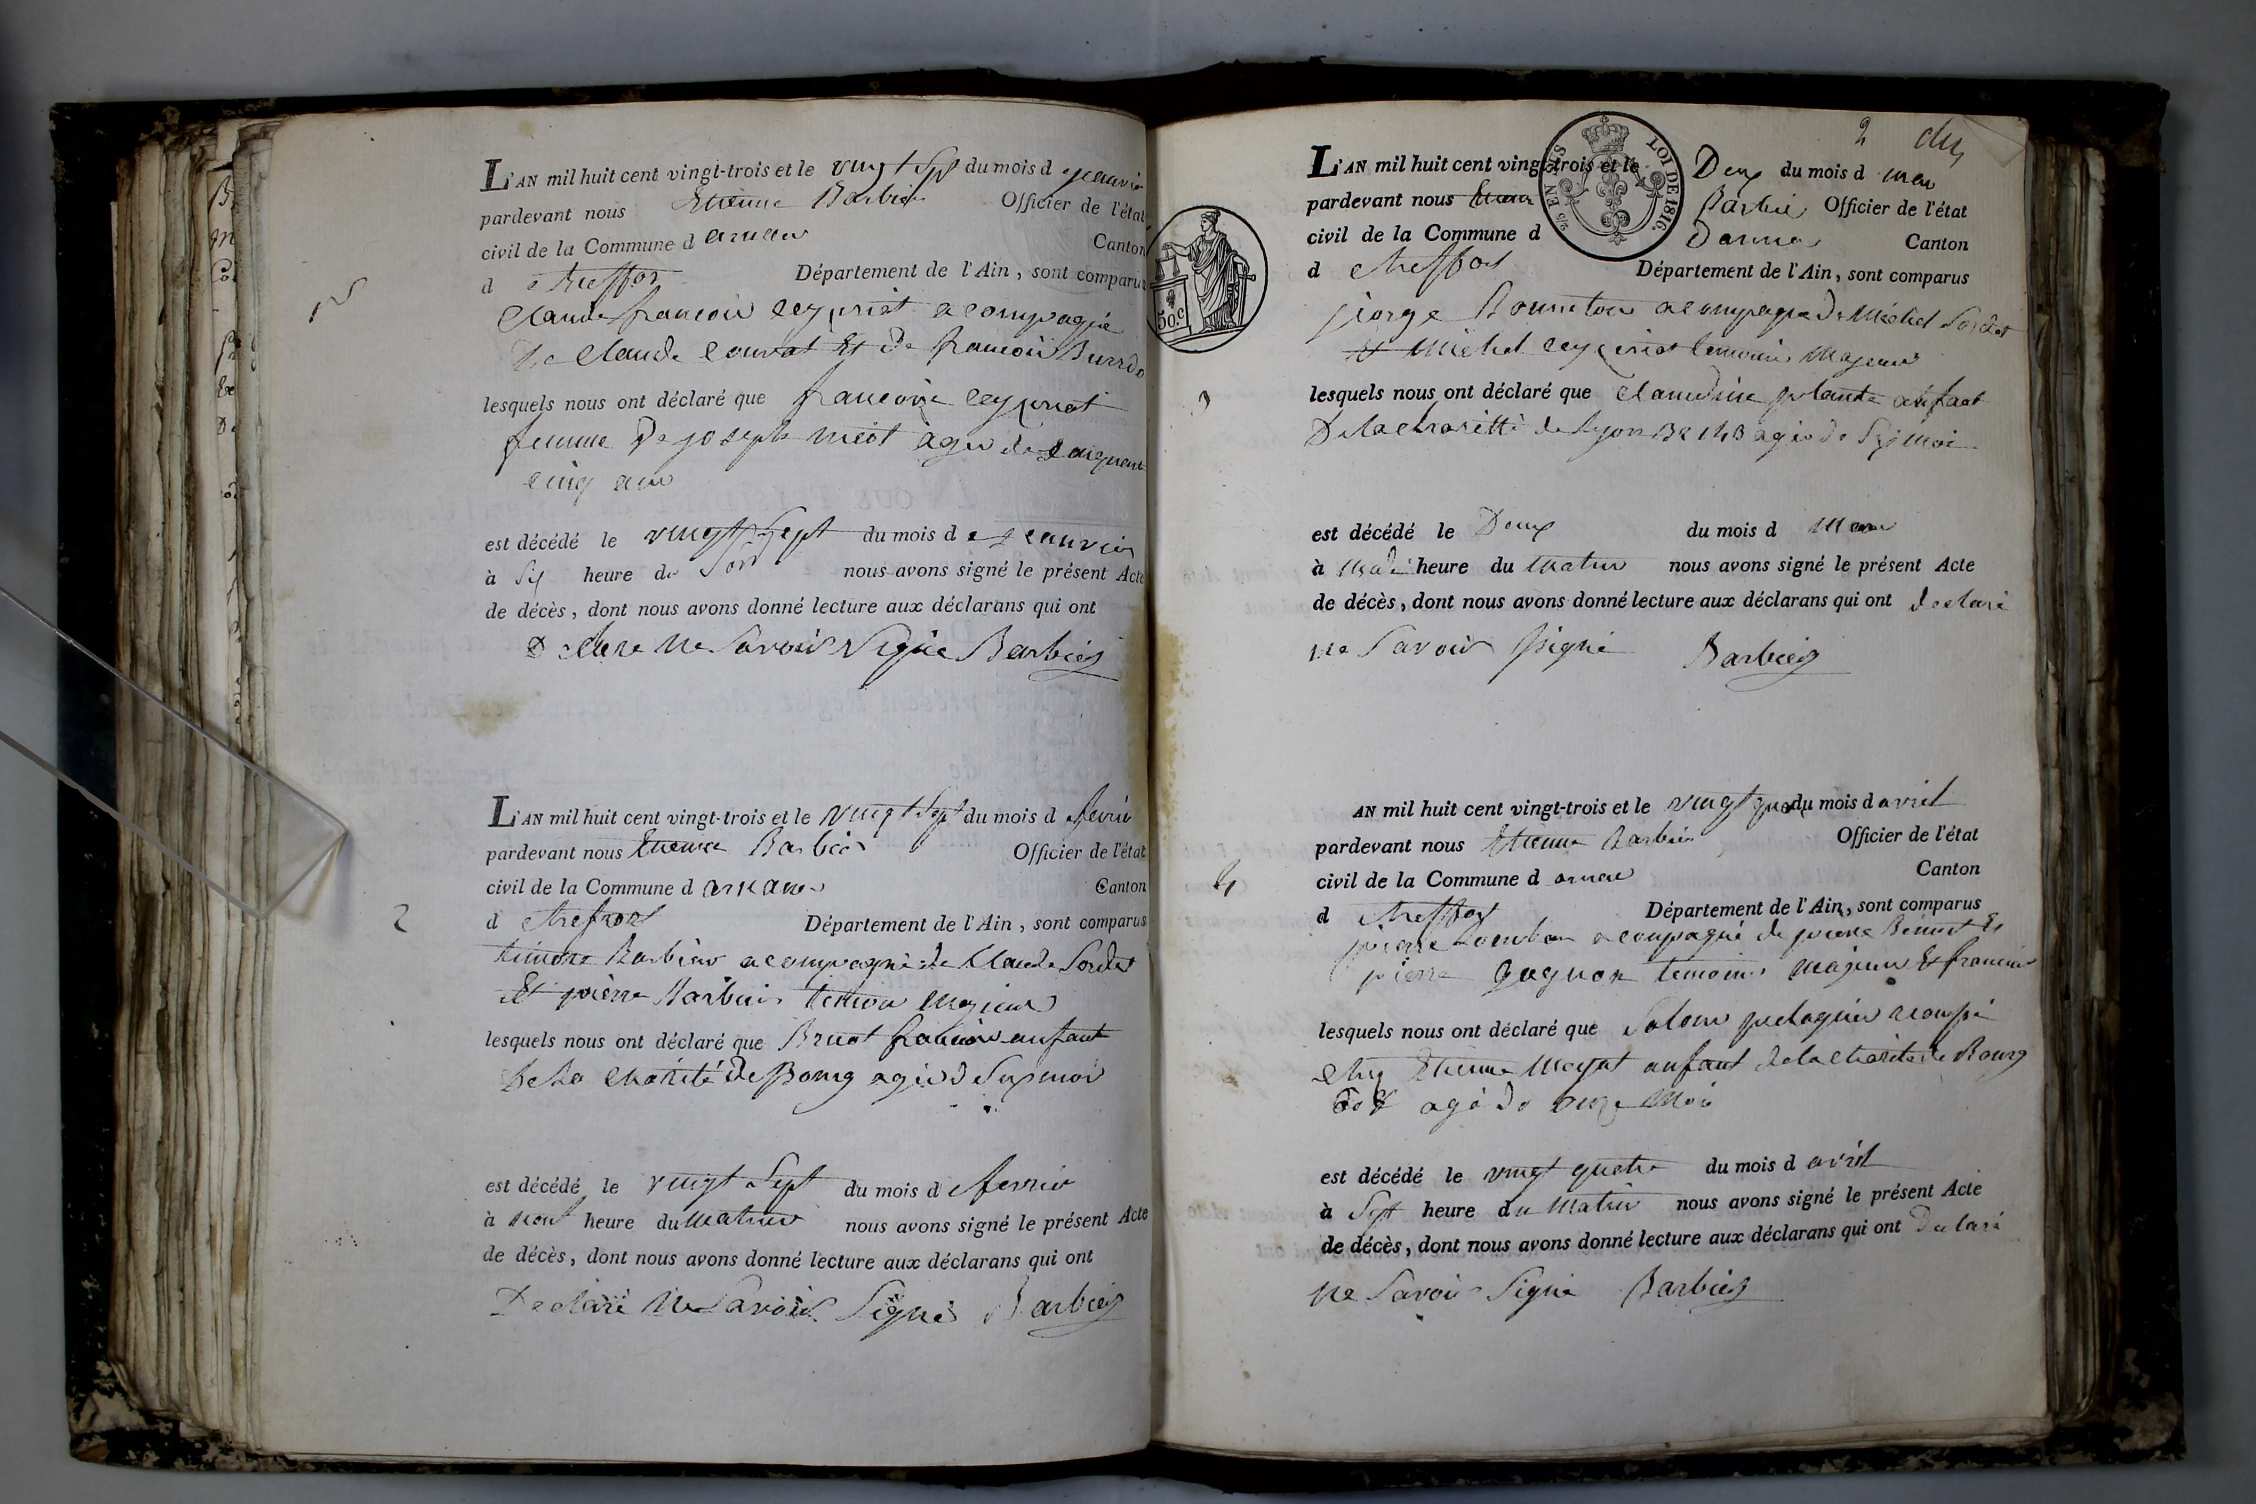 L'AN mil huit cent vingt-trois et le vingt Sept du mois d e Jeanvier
pardevant nous Etienne Barbier Officier de l'état
civil de la Commune d
Canton
d e treffort Département de l'Ain, sont comparus
Claude francois ceyzeriat acompagné
De Claude Convat Et de francois
lesquels nous ont déclaré que francoise ceyzeriat
femme De joseph agée de Cinquante
cinq ans
est décédé le vingt Sept du mois d e jeanvier
à Six heure du Soir nous avons signé le présent Acte
de décès, dont nous avons donné lecture aux déclarans qui ont
Declare Ne Savoir Signé Barbier
2
L'AN mil huit cent vingt-trois et le vingt Sept du mois d e fevrier
pardevant nous Etienne Barbier Officier de l'état
civil de la Commune d
Canton
d e trefort Département de l'Ain, sont comparus
Barbier acompagné de Claude Sordet
Et pierre Barbier temoin majeur
lesquels nous ont déclaré que Brunot francois anfant
De La Charité De Bourg agé de Six moi
est décédé le vingt Sept du mois d e fevrier
à heure du Matin nous avons signé le présent Acte
de décès, dont nous avons donné lecture aux déclarans qui ont
Declaré Ne Savoir Signé Barbier
50.c
2
LOI DE 1816.
EN SUS
L'AN mil huit cent vingt-trois et le Deux du mois d
pardevant nous Barbier Officier de l'état
civil de la Commune d
Canton
d e treffort Département de l'Ain, sont comparus
jiorge acompagné De Michel Sordet
Et Michel ceyzeriat temoin Majeur
3
lesquels nous ont déclaré que Claudine anfant
De la charitté de Lyon agé de Six Moi
est décédé le Deux du mois d
à heure du Matin nous avons signé le présent Acte
de décès, dont nous avons donné lecture aux déclarans qui ont declaré
ne Savoir Signé Barbier
AN mil huit cent vingt-trois et le vingt du mois d avril
pardevant nous Etienne Barbier Officier de l'état
4
civil de la Commune d
Canton
d e treffort Département de l'Ain, sont comparus
pierre acompagné de pierre Et
pierre Gagnon temoins Majeur Et francais
lesquels nous ont déclaré que
chez Etienne anfant de la Charité de Bourg
agé de onze Moi
est décédé le vingt quatre du mois d avril
à Sept heure du Matin nous avons signé le présent Acte
de décès, dont nous avons donné lecture aux déclarans qui ont Declaré
ne Savoir Signé Barbier